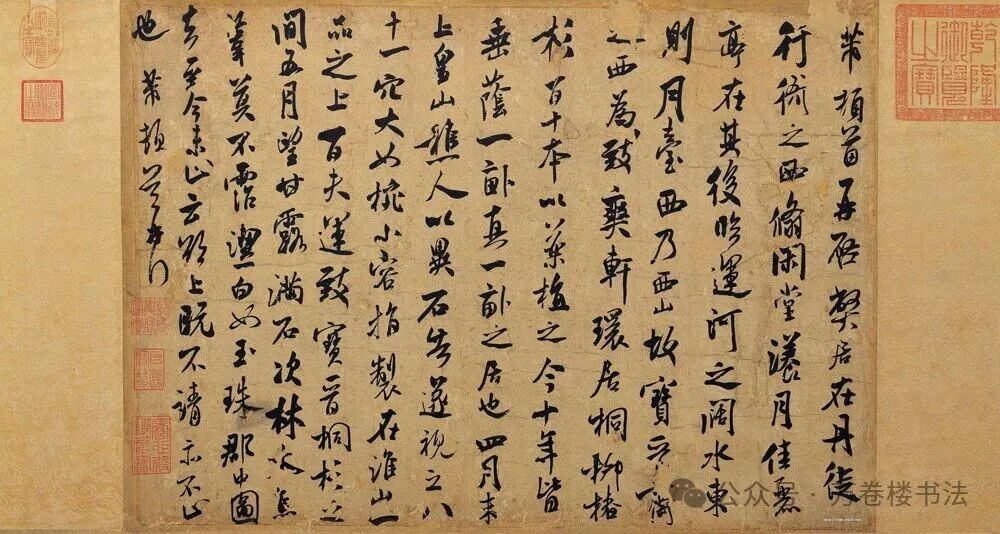 乾隆御覽之寶
芾頓首再啓弊居在丹徒
行衙之西翛閑堂漾月佳麗
亭在其後臨運河之闊水東
則月臺西乃西山故寶晉齋
之西為致爽軒環居桐柳椿
杉百十本以藥植之今十年皆
垂蔭一畝真一畝之居也四月末
上皇山樵人以異石告遂視之八
十一穴大如椀小容指製在淮山一
品之上百夫運致寶晉桐杉之
間五月望甘露滿石次林木焦
葦莫不霑潔白如玉珠郡中圖
去至今未止云欲上既不請亦不止
也芾頓首
公众号 · 万卷楼书法